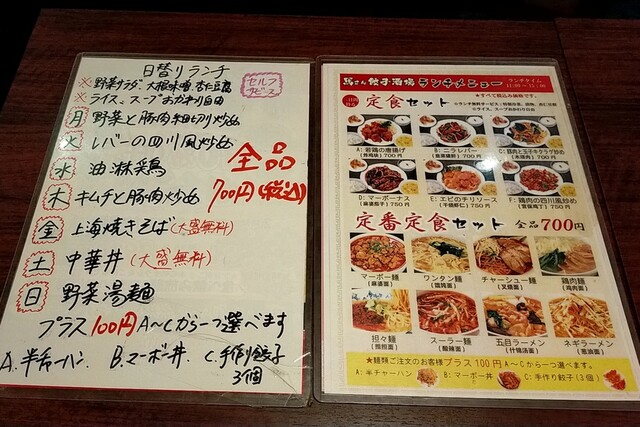 日替りランチ
セルフサービス
※野菜サラダ、大根味噌、杏仁豆腐
※ライス、スープおかわり自由
月 野菜と豚肉細切り炒め
火 レバーの四川風炒め
水 油淋鶏
木 キムチと豚肉炒め
全品
700円(税込)
金 上海焼きそば(大盛無料)
土 中華丼(大盛無料)
日 野菜湯麺
プラス100円A〜Cから一つ選べます
A.半チャーハン、B.マーボー丼、C.手作り餃子
3個
馬さん餃子酒場 ランチメニュー
ランチタイム
★すべて税込み価格です。
定食セット
A:若鶏の唐揚げ
700円
B:ニラレバー
700円
C:豚肉と玉子キクラゲ炒め
700円
D:マーボーナス
(麻婆茄子) 750円
E:エビのチリソース
(干焼虾仁) 750円
F:鶏肉の四川風炒め
(宮保鶏丁) 750円
定番定食セット 全品700円
マーボー麺
(麻婆面)
ワンタン麺
(馄饨面)
チャーシュー麺
(叉焼面)
鶏肉麺
(鸡肉面)
担々麺
(担担面)
スーラー麺
(酸辣面)
五目ラーメン
(什锦汤面)
ネギラーメン
(葱油面)
★麺類ご注文のお客様プラス100円A〜Cから一つ選べます。
A:半チャーハン
B:マーボー丼
C:手作り餃子(3個)